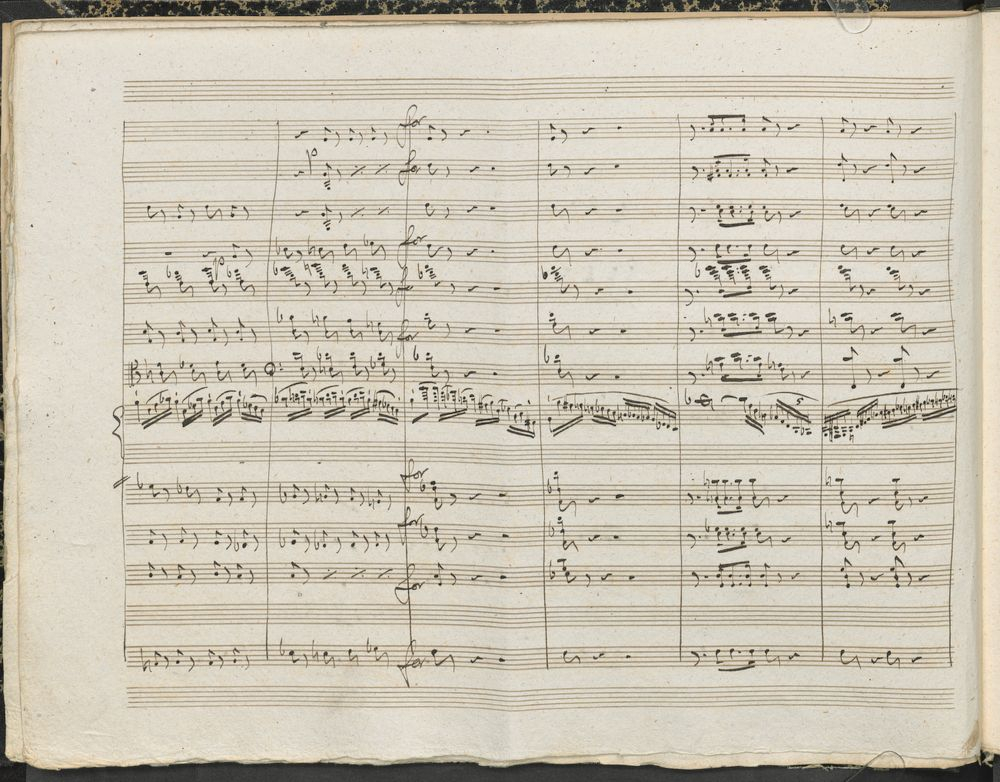 for
p
for
for
p
for
for
5
for
for
for
for